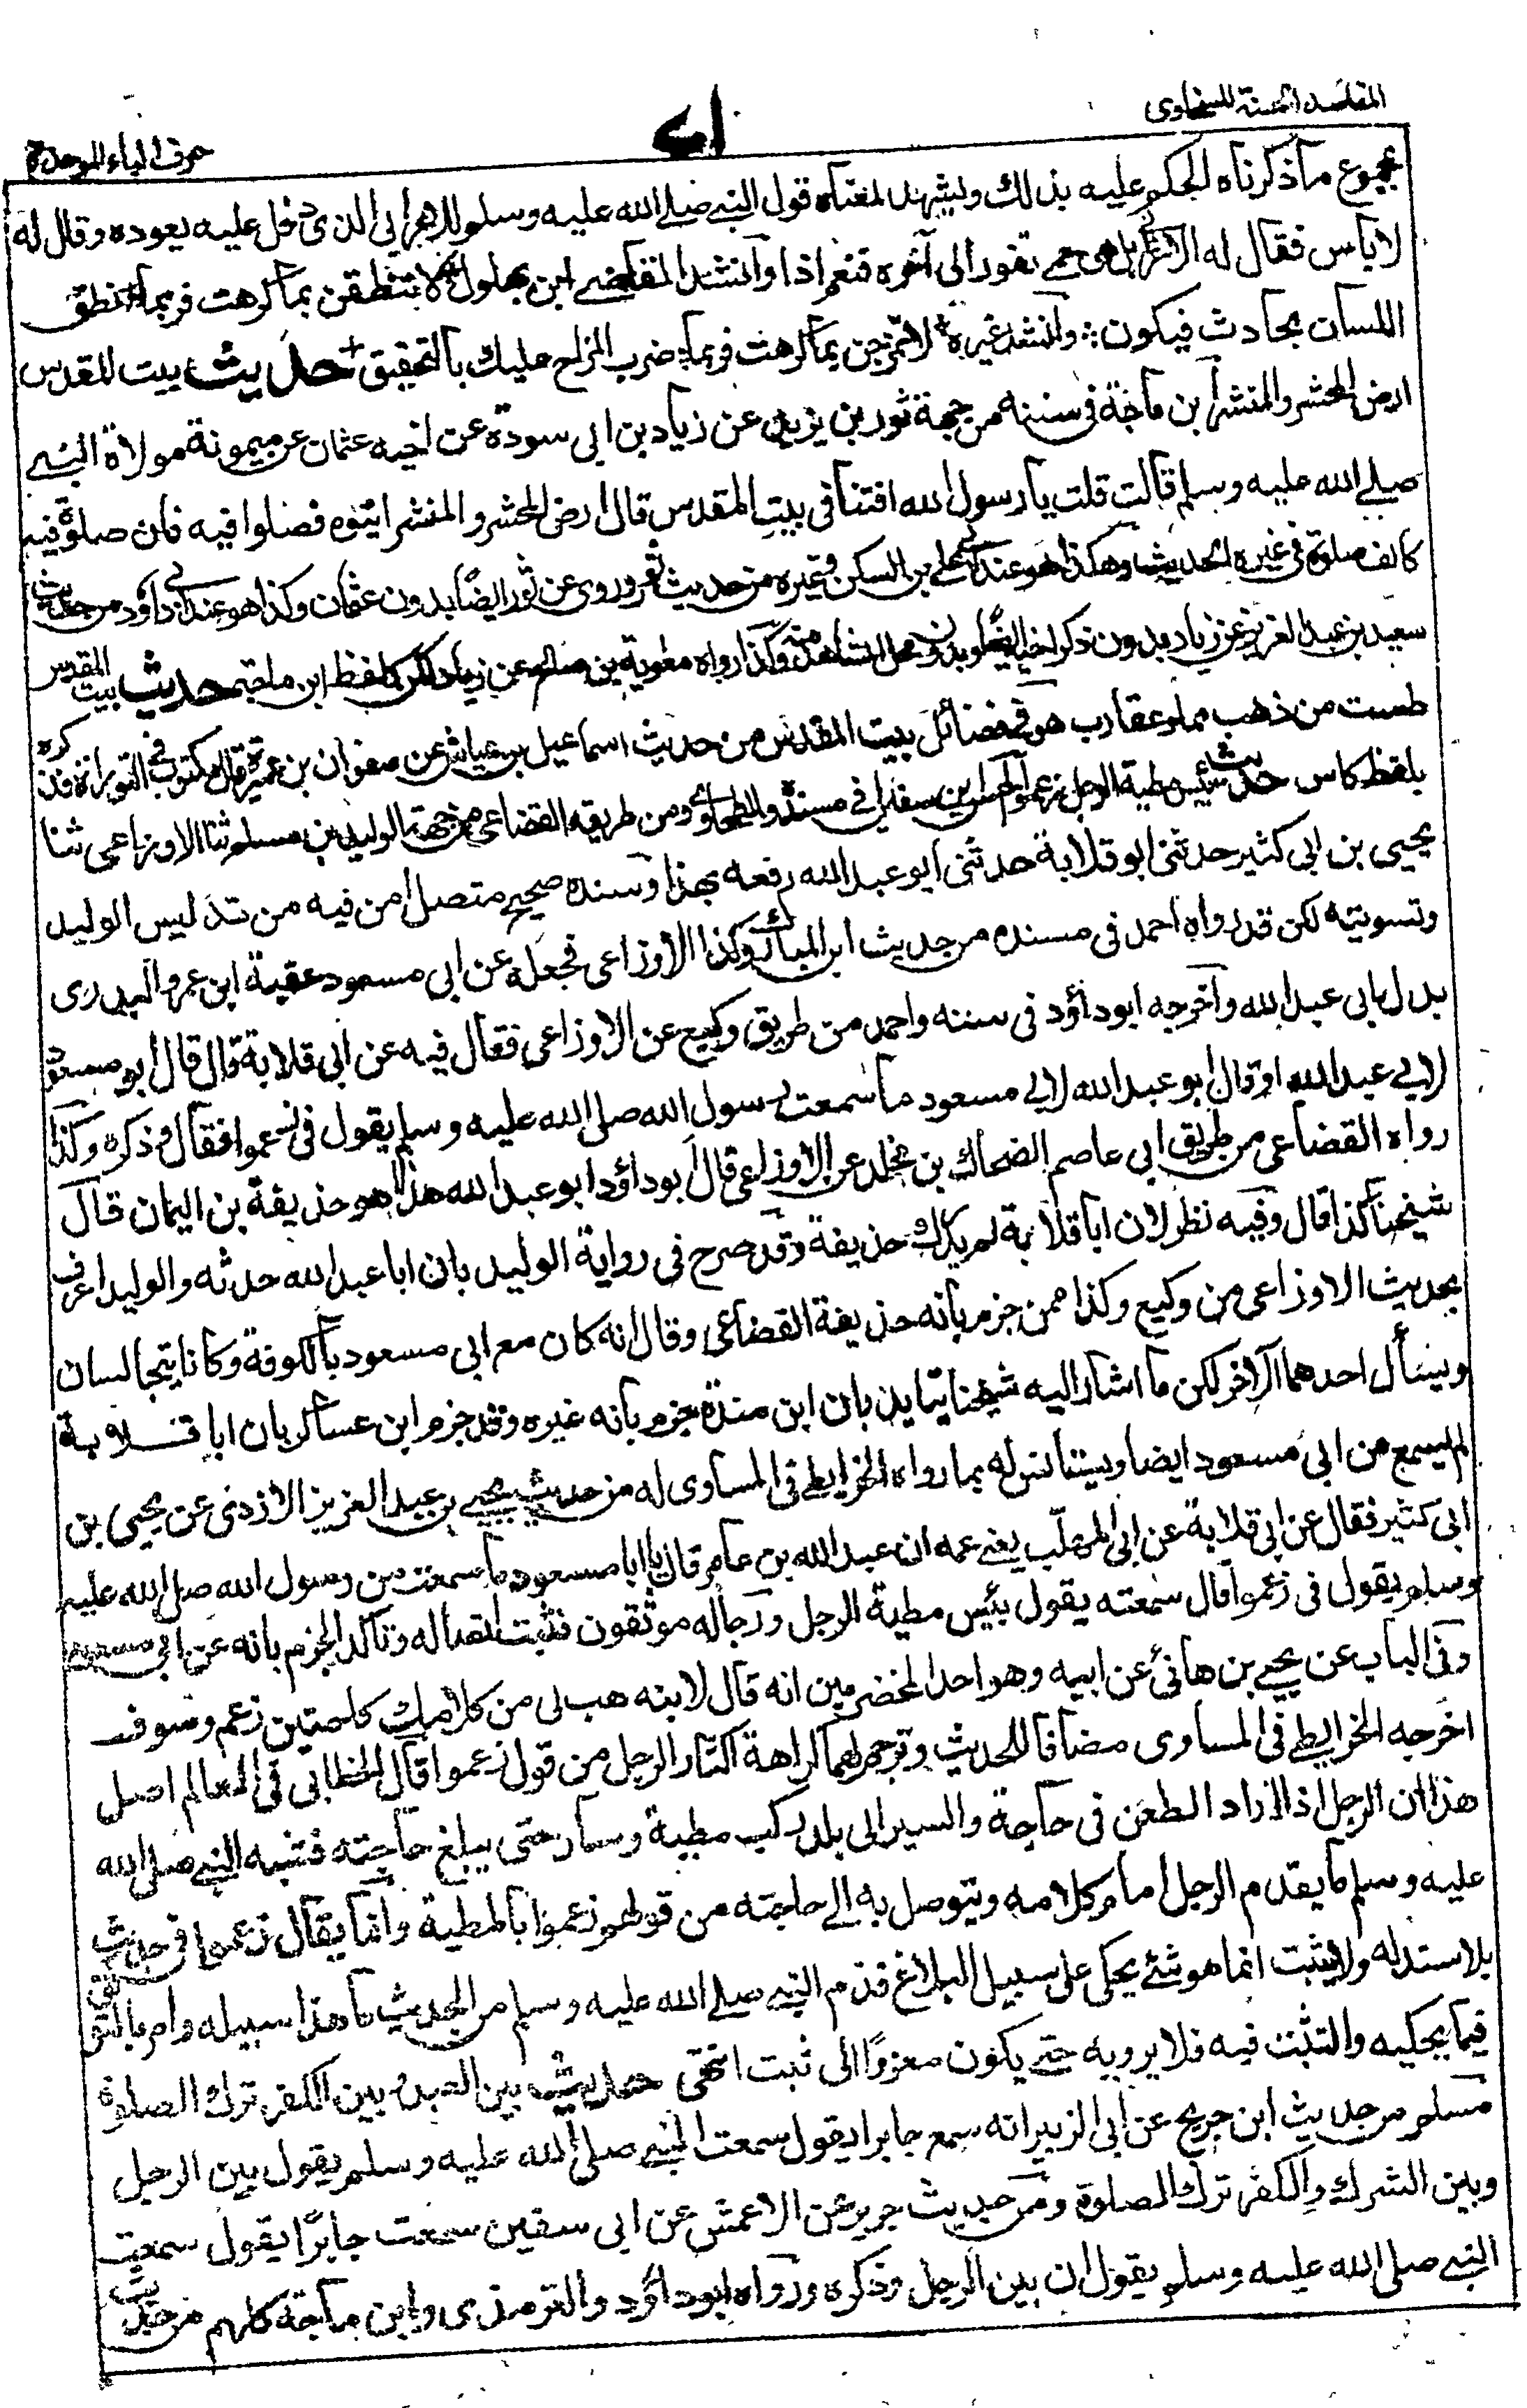 المقاصد الحسنة للسخاوى
حرف الباء الموحدة
مجموع ما ذكرناه الحكم عليه بذلك ويشهد لمعناه قول النبي صلى الله عليه وسلم للاعرابي الذى دخل عليه يعوده وقال له
لا باس فقال له الاعرابي بل هى حمى تفور الى آخره فنعم اذا وانشد القاضي ابن بهلول لا تنطقن بما كرهت فربما نطق
اللسان بحادث فيكون وانشد غيره لا تمزحن بما كرهت فربما ضرب المزاح عليك بالتحقيق حديث بيت المقدس
ارض المحشر والمنشر ابن ماجة فى سننه من جهة ثور بن يزيد عن زياد بن ابى سودة عن اخيه عثمان عن ميمونة مولاة النبي
صلى الله عليه وسلم قالت قلت يا رسول الله افتنا فى بيت المقدس قال ارض المحشر والمنشر ائتوه فصلوا فيه فان صلوة فيه
كالف صلوة فى غيره الحديث وهكذا هو عند ابى على بن السكن وغيره من حديث ثور وروى عن ثور ايضا بدون عثمان وكذا هو عند ابى داؤد من حديث
سعيد بن عبد العزيز عن زياد بدون ذكر اخيه ايضا وكذا رواه معاوية بن صالح عن زياد لكن كلفظ ابن ماجة حديث بيت المقدس
طست من ذهب مملو عقارب هو فى فضائل بيت المقدس من حديث اسماعيل بن عياش عن صفوان بن عمرو قال مكتوب فى التوراة فذكره
بلفظ كاس حديث بئس مطية الرجل زعموا الحسن بن سفين فى مسنده والطحاوى ومن طريقه القضاعى من جهة الوليد بن مسلم ثنا الاوزاعى ثنا
يحيى بن ابى كثير حدثنى ابو قلابة حدثنى ابو عبد الله رفعه بهذا وسنده صحيح متصل امن فيه من تدليس الوليد
وتسويته لكن قد رواه احمد فى مسنده من حديث ابن المبارك وكذا الاوزاعى فجعله عن ابى مسعود عقبة ابن عمرو البدرى
بدل ابى عبد الله واخرجه ابو داؤد فى سننه واحمد من طريق وكيع عن الاوزاعى فقال فيه عن ابى قلابة قال قال ابو مسعود
لابى عبد الله او قال ابو عبد الله لابى مسعود ما سمعت رسول الله صلى الله عليه وسلم يقول فى زعموا فقال وذكره وكذا
رواه القضاعى من طريق ابى عاصم الضحاك بن مخلد عن الاوزاعى قال ابو داؤد ابو عبد الله هذا هو حذيفة بن اليمان قال
شيخنا كذا قال وفيه نظر لان ابا قلابة لم يدرك حذيفة وقد صرح فى رواية الوليد بان ابا عبد الله حدثه والوليد اعرف
بحديث الاوزاعى من وكيع وكذا ممن جزم بانه حذيفة القضاعى وقال انه كان مع ابى مسعود بالكوفة وكانا يتجالسان
ويسأل احدهما الاخر لكن ما اشار اليه شيخنا يتايد بان ابن مندة جزم بانه غيره وقد جزم ابن عساكر بان ابا قلابة
لم يسمع من ابى مسعود ايضا ويستانس له بما رواه الخرايطى فى المساوى له من حديث يحيى بن عبد العزيز الازدى عن يحيى بن
ابى كثير فقال عن ابى قلابة عن ابى المهلب يعنى عمه ان عبد الله بن عامر قال يا ابا مسعود ما سمعت من رسول الله صلى الله عليه
وسلم يقول فى زعموا قال سمعته يقول بئس مطية الرجل ورجاله موثقون فثبت اتصاله وتاكد الجزم بانه عن ابى مسعود
وفى الباب عن يحيى بن هانئ عن ابيه وهو احد المخضرمين انه قال لابنه هب لى من كلامك كلمتين زعم وسوف
اخرجه الخرايطى فى المساوى مضافا للحديث وترجم لهما كراهة اكثار الرجل من قول زعموا قال الخطابى فى المعالم اصل
هذا ان الرجل اذا اراد الظعن فى حاجة والسير الى بلد ركب مطية وسار حتى يبلغ حاجته فشبه النبي صلى الله
عليه وسلم ما يقدم الرجل امام كلامه ويتوصل به الى حاجته من قولهم زعموا بالمطية وانما يقال زعموا فى حديث
بلا سند له ولا يثبت انما هو شئ يحكى على سبيل البلاغ فذم النبي صلى الله عليه وسلم من الحديث ما هذا سبيله وامر بالتوثق
فيما يحكيه والتثبت فيه فلا يرويه حتى يكون معزوا الى ثبت انتهى حديث بين العبد وبين الكفر ترك الصلوة
مسلم من حديث ابن جريج عن ابى الزبير انه سمع جابرا يقول سمعت النبي صلى الله عليه وسلم يقول بين الرجل
وبين الشرك والكفر ترك الصلوة ومن حديث جرير عن الاعمش عن ابى سفين سمعت جابرا يقول سمعت
النبي صلى الله عليه وسلم يقول ان بين الرجل وذكره ورواه ابو داؤد والترمذى وابن ماجة كلهم من حديث